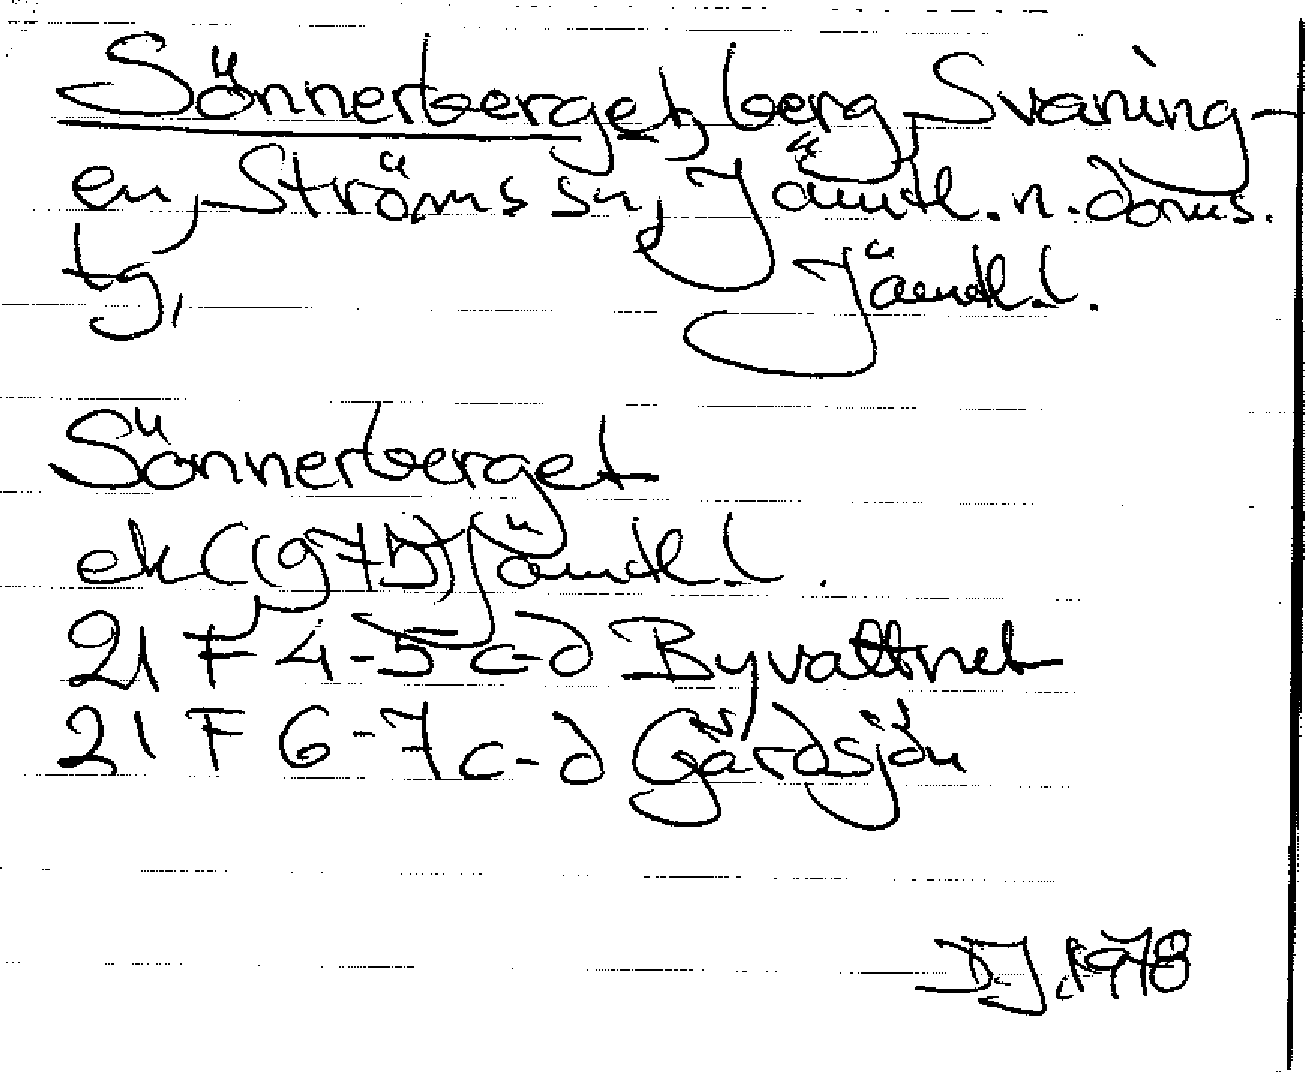 Sönnerberget, berg, Svaning-
en, Ströms sn, Jämtl. n. doms.
tg, Jämtl. l.
Sönnerberget
ek (1975) Jämtl. l.
21 F 4-5 c-d Byvattnet
21 F 6-7 c-d Gårdsjön
DJ 1978